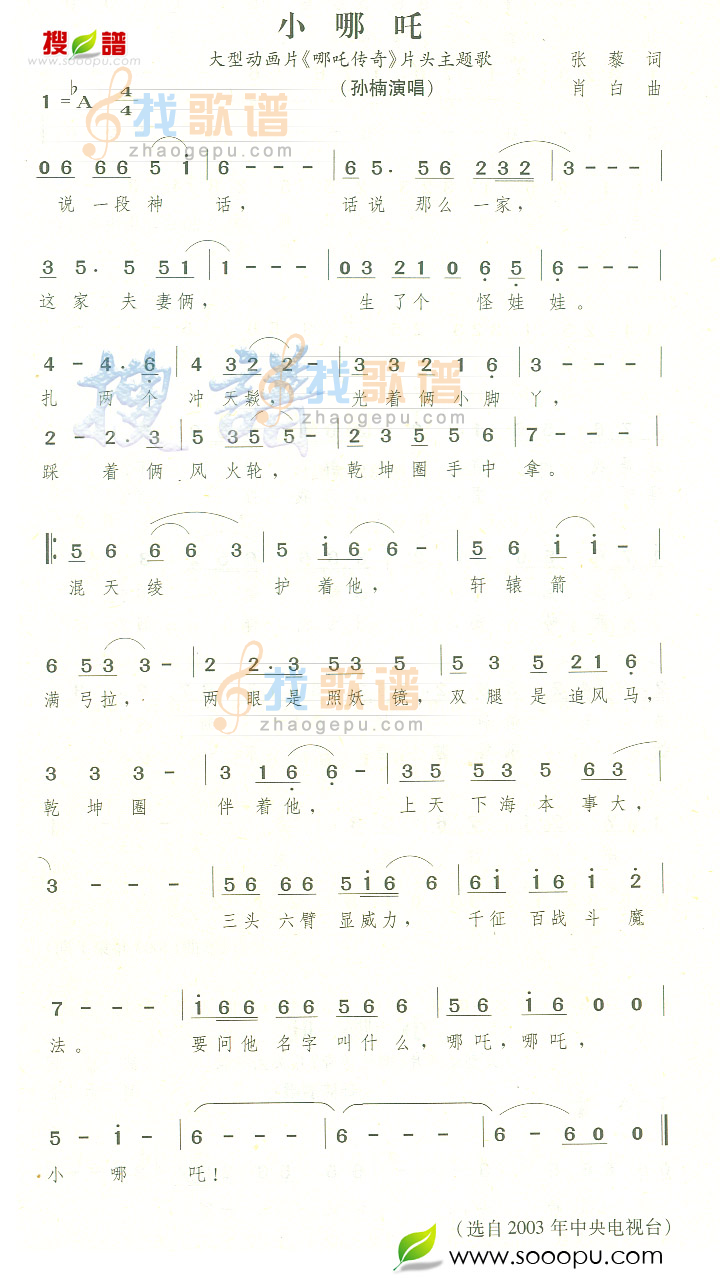 搜譜
www.sooopu.com
小哪吒
大型动画片《哪吒传奇》片头主题歌
张藜 词
(孙楠演唱)
肖白 曲
1=♭A 4/4
找歌谱
zhaogepu.com
06 66 5 i | 6 - - - | 65. 56 232 | 3 - - - |
说一段神 话, 话说 那么一家,
3 5. 5 51 | 1 - - - | 03 21 0 6 5 | 6 - - - |
这家 夫妻俩, 生了个 怪娃娃。
4 - 4. 6 | 4 32 2 - | 3 3 3 2 1 6 | 3 - - - |
扎 两个冲天鬏, 光着俩小脚丫,
搜譜
找歌谱
zhaogepu.com
2 - 2. 3 | 5 35 5 - | 2 3 5 5 5 6 | 7 - - - |
踩 着俩风火轮, 乾坤圈手中拿。
‖: 5 6 66 3 | 5 i6 6 - | 5 6 i i - |
混天绫 护着他, 轩辕箭
6 53 3 - | 2 2. 3 53 5 | 53 5 521 6 |
满弓拉, 两眼是照妖镜, 双腿是追风马,
找歌谱
zhaogepu.com
3 3 3 - | 3 16 6 - | 35 535 63 |
乾坤圈 伴着他, 上天下海本事大,
3 - - - | 56 66 5i6 6 | 6i i6 i 2 |
三头六臂显威力, 千征百战斗魔
7 - - - | i666 66 56 6 | 56 i6 0 0 |
法。 要问他名字叫什么,哪吒,哪吒,
5 - i - | 6 - - - | 6 - - - | 6 - 6 0 0 ‖
小哪 吒!
(选自2003年中央电视台)
www.sooopu.com